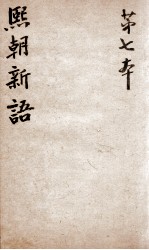 第七本
熙朝新語